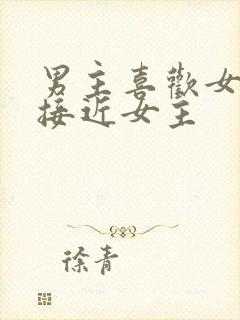 男主喜歡女
接近女主
徐青